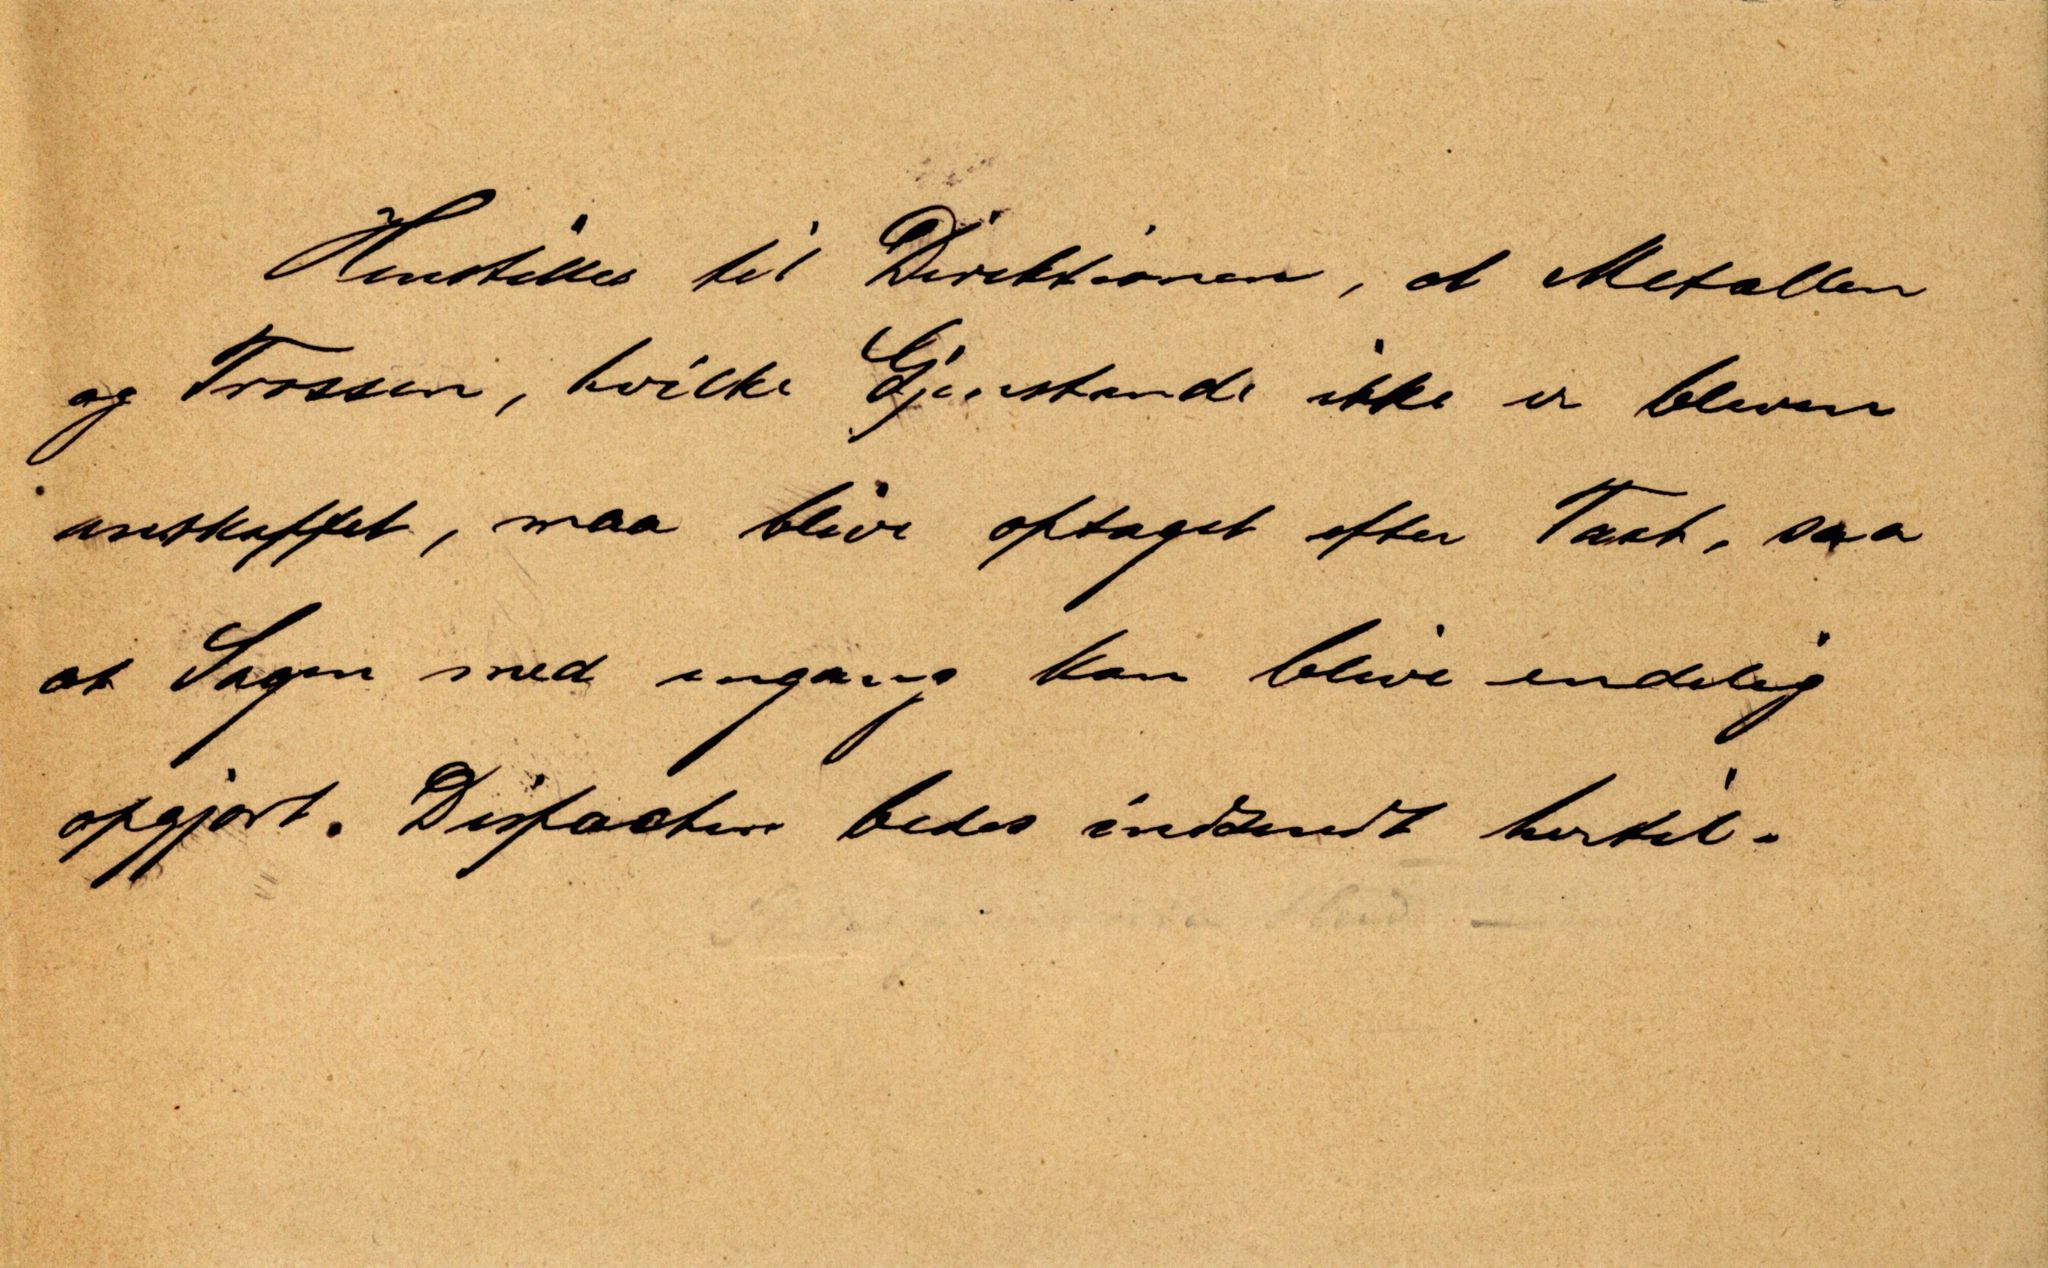 Henstilles til Direktionen, at Metallen
og Trossen, hvilke Gjenstande ikke er bleven
anskaffet, maa blive optaget efter Taxt, saa
at Sagen med engang kan blive endelig
opgjort. Dispachen bedes indsendt hertil.